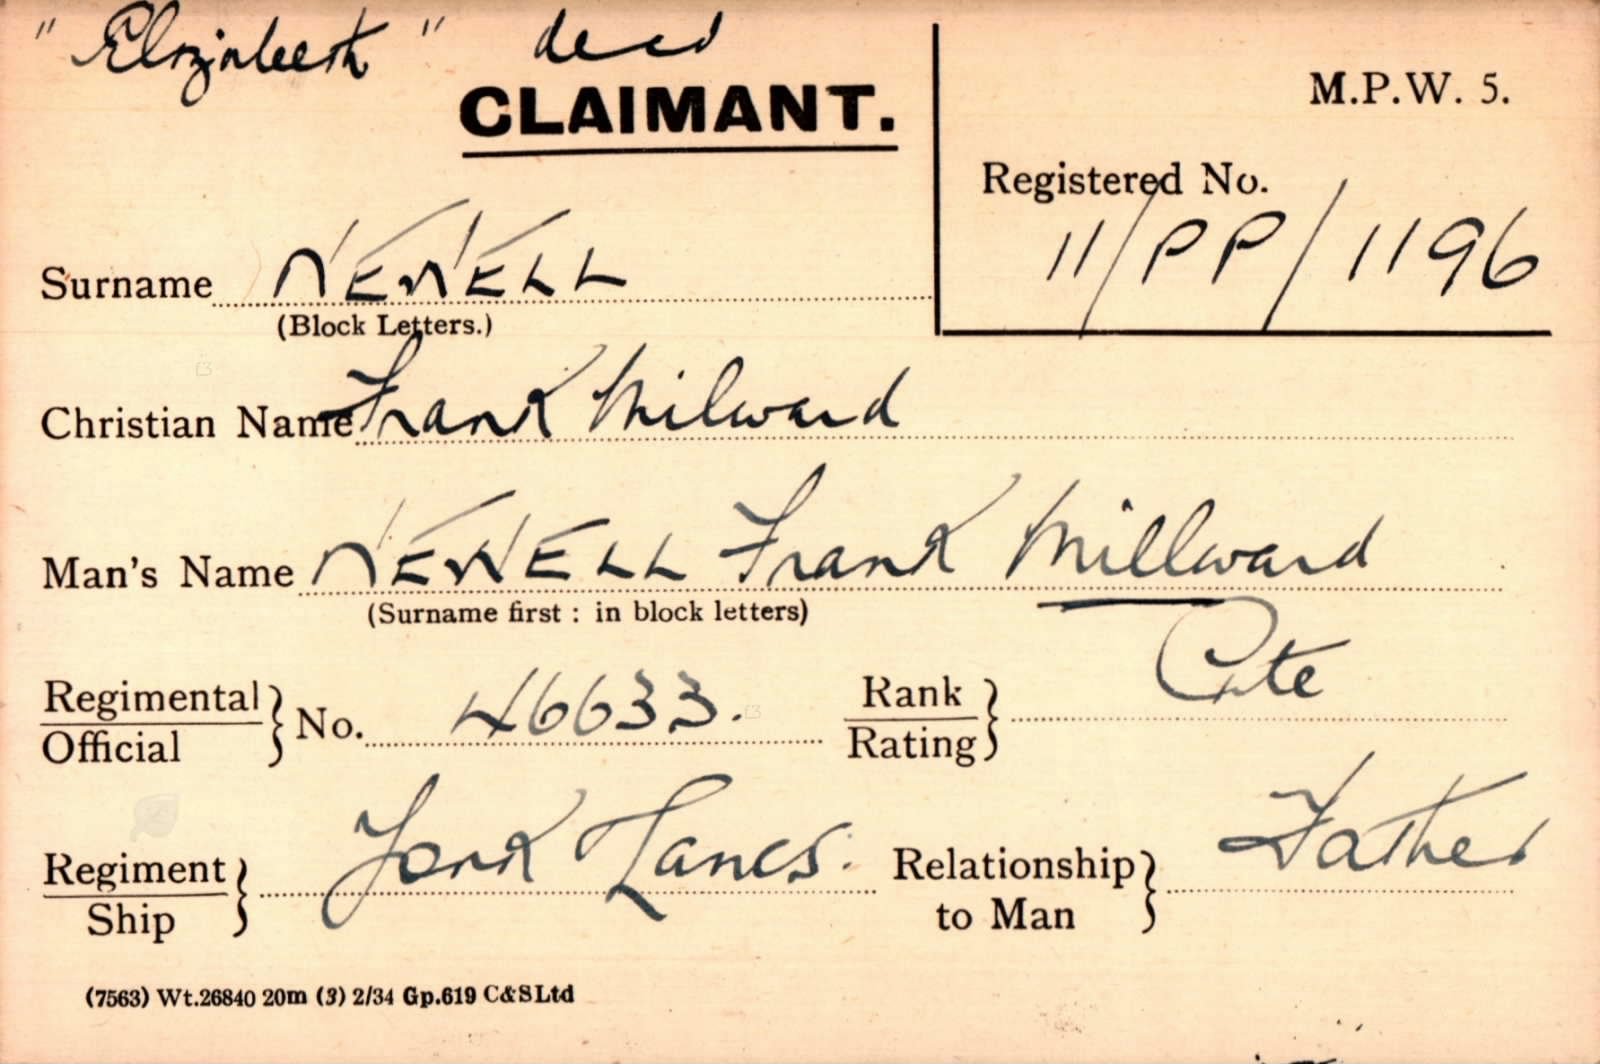 "Elizabeth" decd
CLAIMANT.
M.P.W. 5.
Registered No.
11/PP/1196
Surname NEWELL
(Block Letters.)
Christian Name Frank Milward
Man's Name NEWELL Frank Millward
(Surname first : in block letters)
Regimental / Official } No. 46633. Rank / Rating } Pte
Regiment / Ship } York Lancs. Relationship to Man } Father
(7563) Wt.26840 20m (3) 2/34 Gp.619 C&S Ltd